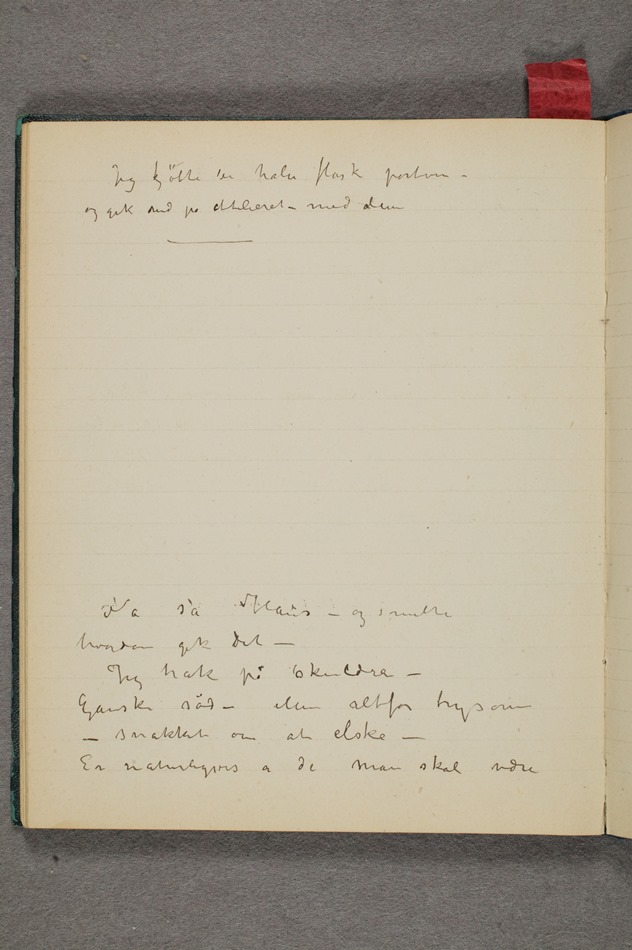 Jeg kjöbte en halv flask portvin –
og gik ned på Attelieret – med dem
Na så Hans – og smilte
hvordan gik det –
Jeg trak på skuldra –
Ganske söd – men altfor tugsom
– snakket om at elske –
Er naturligvis a de man skal være